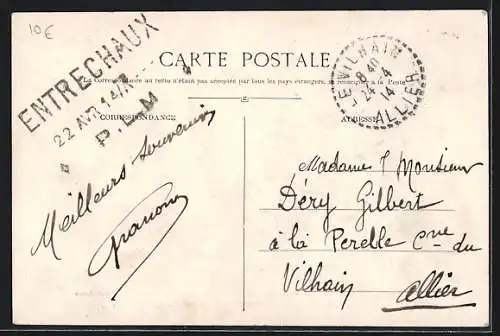 10€
ENTRECHAUX
22 AVR 14
P.L.M
CARTE POSTALE
La Correspondance au recto n'étant pas acceptée par tous les pays étrangers, se renseigner à la Poste
CORRESPONDANCE
ADRESSE
LE VILHAIN
8 40
24 - 4
14
ALLIER
Meilleurs souvenirs
Madame & Monsieur
Déry Gilbert
à la Perelle Cne du
Vilhain Allier